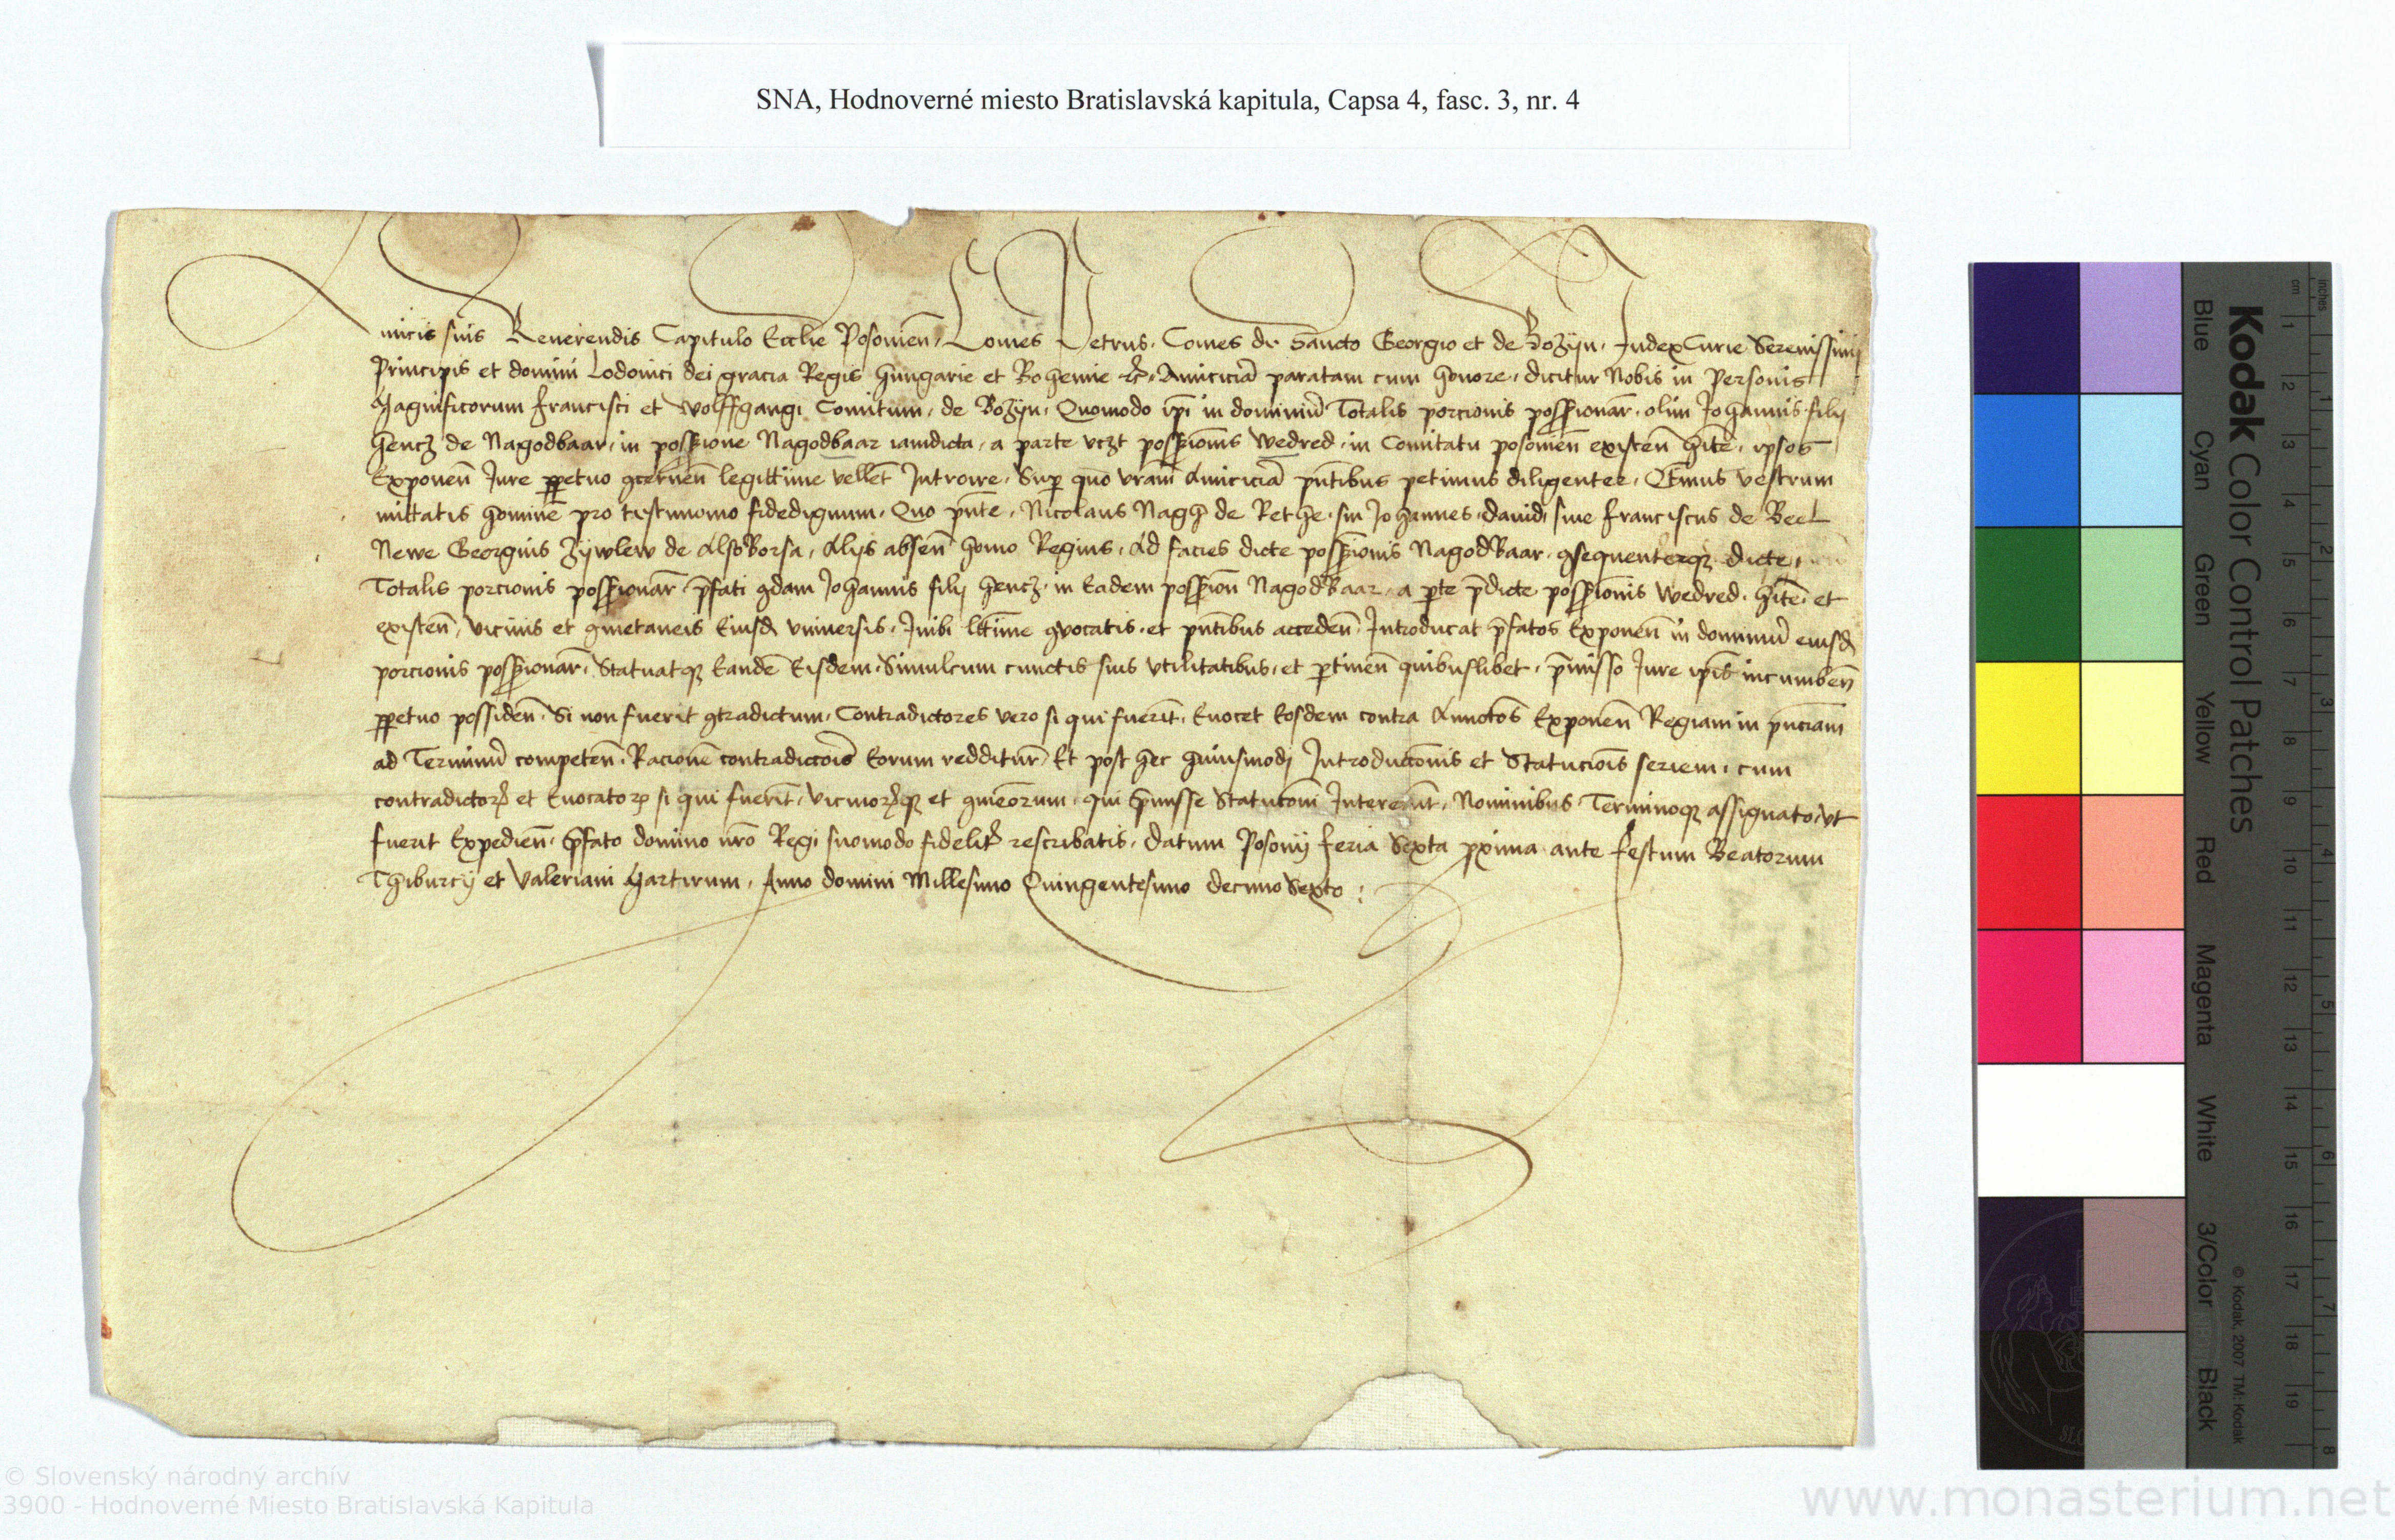 SNA, Hodnoverné miesto Bratislavská kapitula, Capsa 4, fasc. 3, nr. 4
Amicis suis Reverendis Capitulo Eccl̄ie Posonien̄, Comes Petrus, Comes de Sancto Georgio et de Bozijn, Judex Curie Serenissimj
Principis et domini Lodovici dei gracia Regis hungarie et Bohemie etc̄. Amiciciā paratam cum honore, dicitur Nobis in Personis
Magnificorum Francisci et Wolffgangi Comitum, de Bozijn, Quomodo ip̄i in dominiū Totalis porcionis possessionar̄, olim Johannis filij
hencz de Nagodbaar, in possessione Nagodbaar iamdicta, a parte possessionis Wedred, in Comitatu posonien̄ existen̄ hite, ipsos
Exponen̄ Jure perpetuo concernen̄ legittime vellet Introire, Sup quo vram̄ Amiciciā pn̄tibus petimus diligenter, Q̄tinus vestrum
mittatis hominē pro testimonio fidedignum, Quo pn̄te, Nicolaus Nagh de Rethe, sin Johannes david, sive Franciscus de Beel
Newe Georgius Zijwlew de AlsoBorsa, Alijs absen̄ homo Regius, Ad facies dicte possessionis NagodBaar, consequenterqz dicte,
Totalis porcionis possessionar̄, p̄fati condam Johannis filij hencz, in Eadem possession̄ NagodBaar, a parte p̄dicte possessionis Wedred, hite, et
existen̄, vicinis et cometaneis Eiusd vniversis, Inibi ltīme convocatis, et pn̄tibus acceden̄, Introducat p̄fatos Exponen̄ in dominiū eiusd
porcionis possessionar̄, Statuatqz Eandē Eisdem, Simulcum cunctis suis vtilitatibus, et ptinen̄ quibuslibet, p̄misso Jure ip̄is incumben̄
perpetuo possiden̄, Si non fuerit contradictum, Contradictores vero si qui fuerīt, Evocet Eosdem contra Annotos̄ Exponen̄ Regiam in pn̄ciam
ad Terminū competen̄, Racionē contradiccōis Eorum redditur̄ Et post hec huiusmodj Introduccōnis et Statucōis seriem, cum
contradictor et Evocator si qui fuerīt, vicinorqz et cometeorum, qui p̄misse Statucōni Intererūt, Nominibus Terminoqz assignato, vt
fuerit Expedien̄, p̄fato domino nrō Regi suomodo fidelit rescribatis, datum Posonij feria Sexta proxima ante festum Beatorum
Thiburcij et Valeriani Martirum, Anno domini Millesimo Quingentesimo decimo Sexto:
Kodak Color Control Patches
Blue Cyan Green Yellow Red Magenta White 3/Color Black
inches cm
1 2 3 4 5 6 7 8 9 10 11 12 13 14 15 16 17 18 19
1 2 3 4 5 6 7 8
© Kodak, 2007 TM: Kodak
© Slovenský národný archív
3900 - Hodnoverné Miesto Bratislavská Kapitula
www.monasterium.net